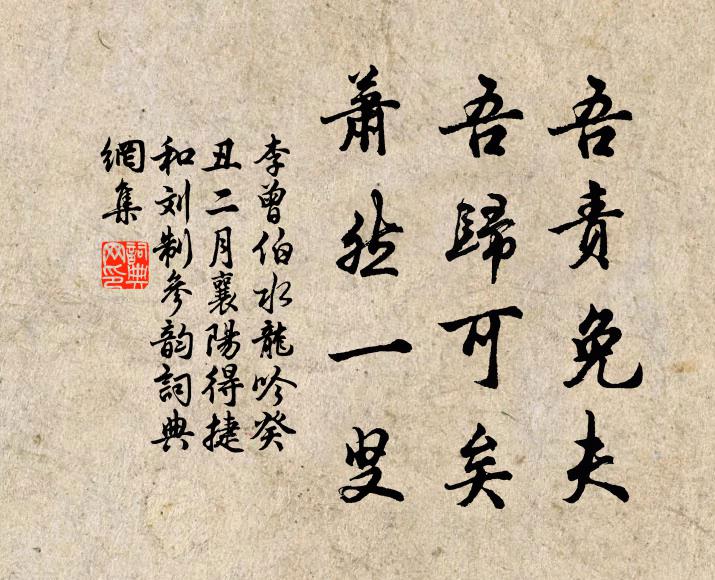 吾責免夫
吾歸可矣
蕭然一叟
李曾伯水龍吟癸
丑二月襄陽得捷
和刘制參韵詞典
網集
詞典
网印